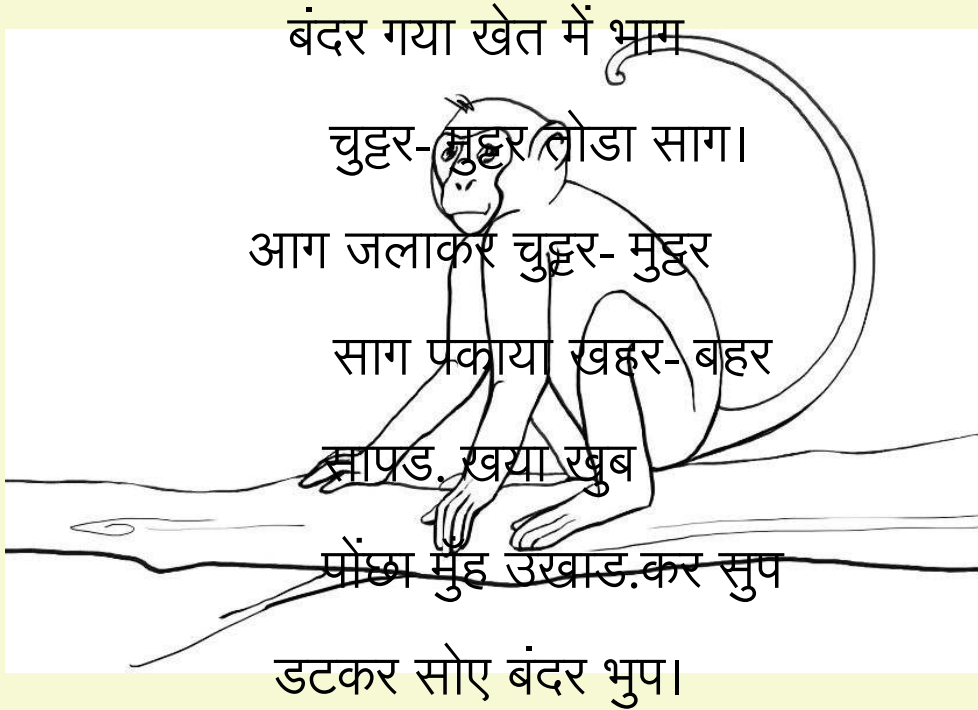 बंदर गया खेत में भाग
चुट्टर- मुट्टर तोडा साग।
आग जलाकर चुट्टर- मुट्ठर
साग पकाया खहर- बहर
सापड. खया खुब
पोंछा मुँह उखाड.कर सुप
डटकर सोए बंदर भुप।